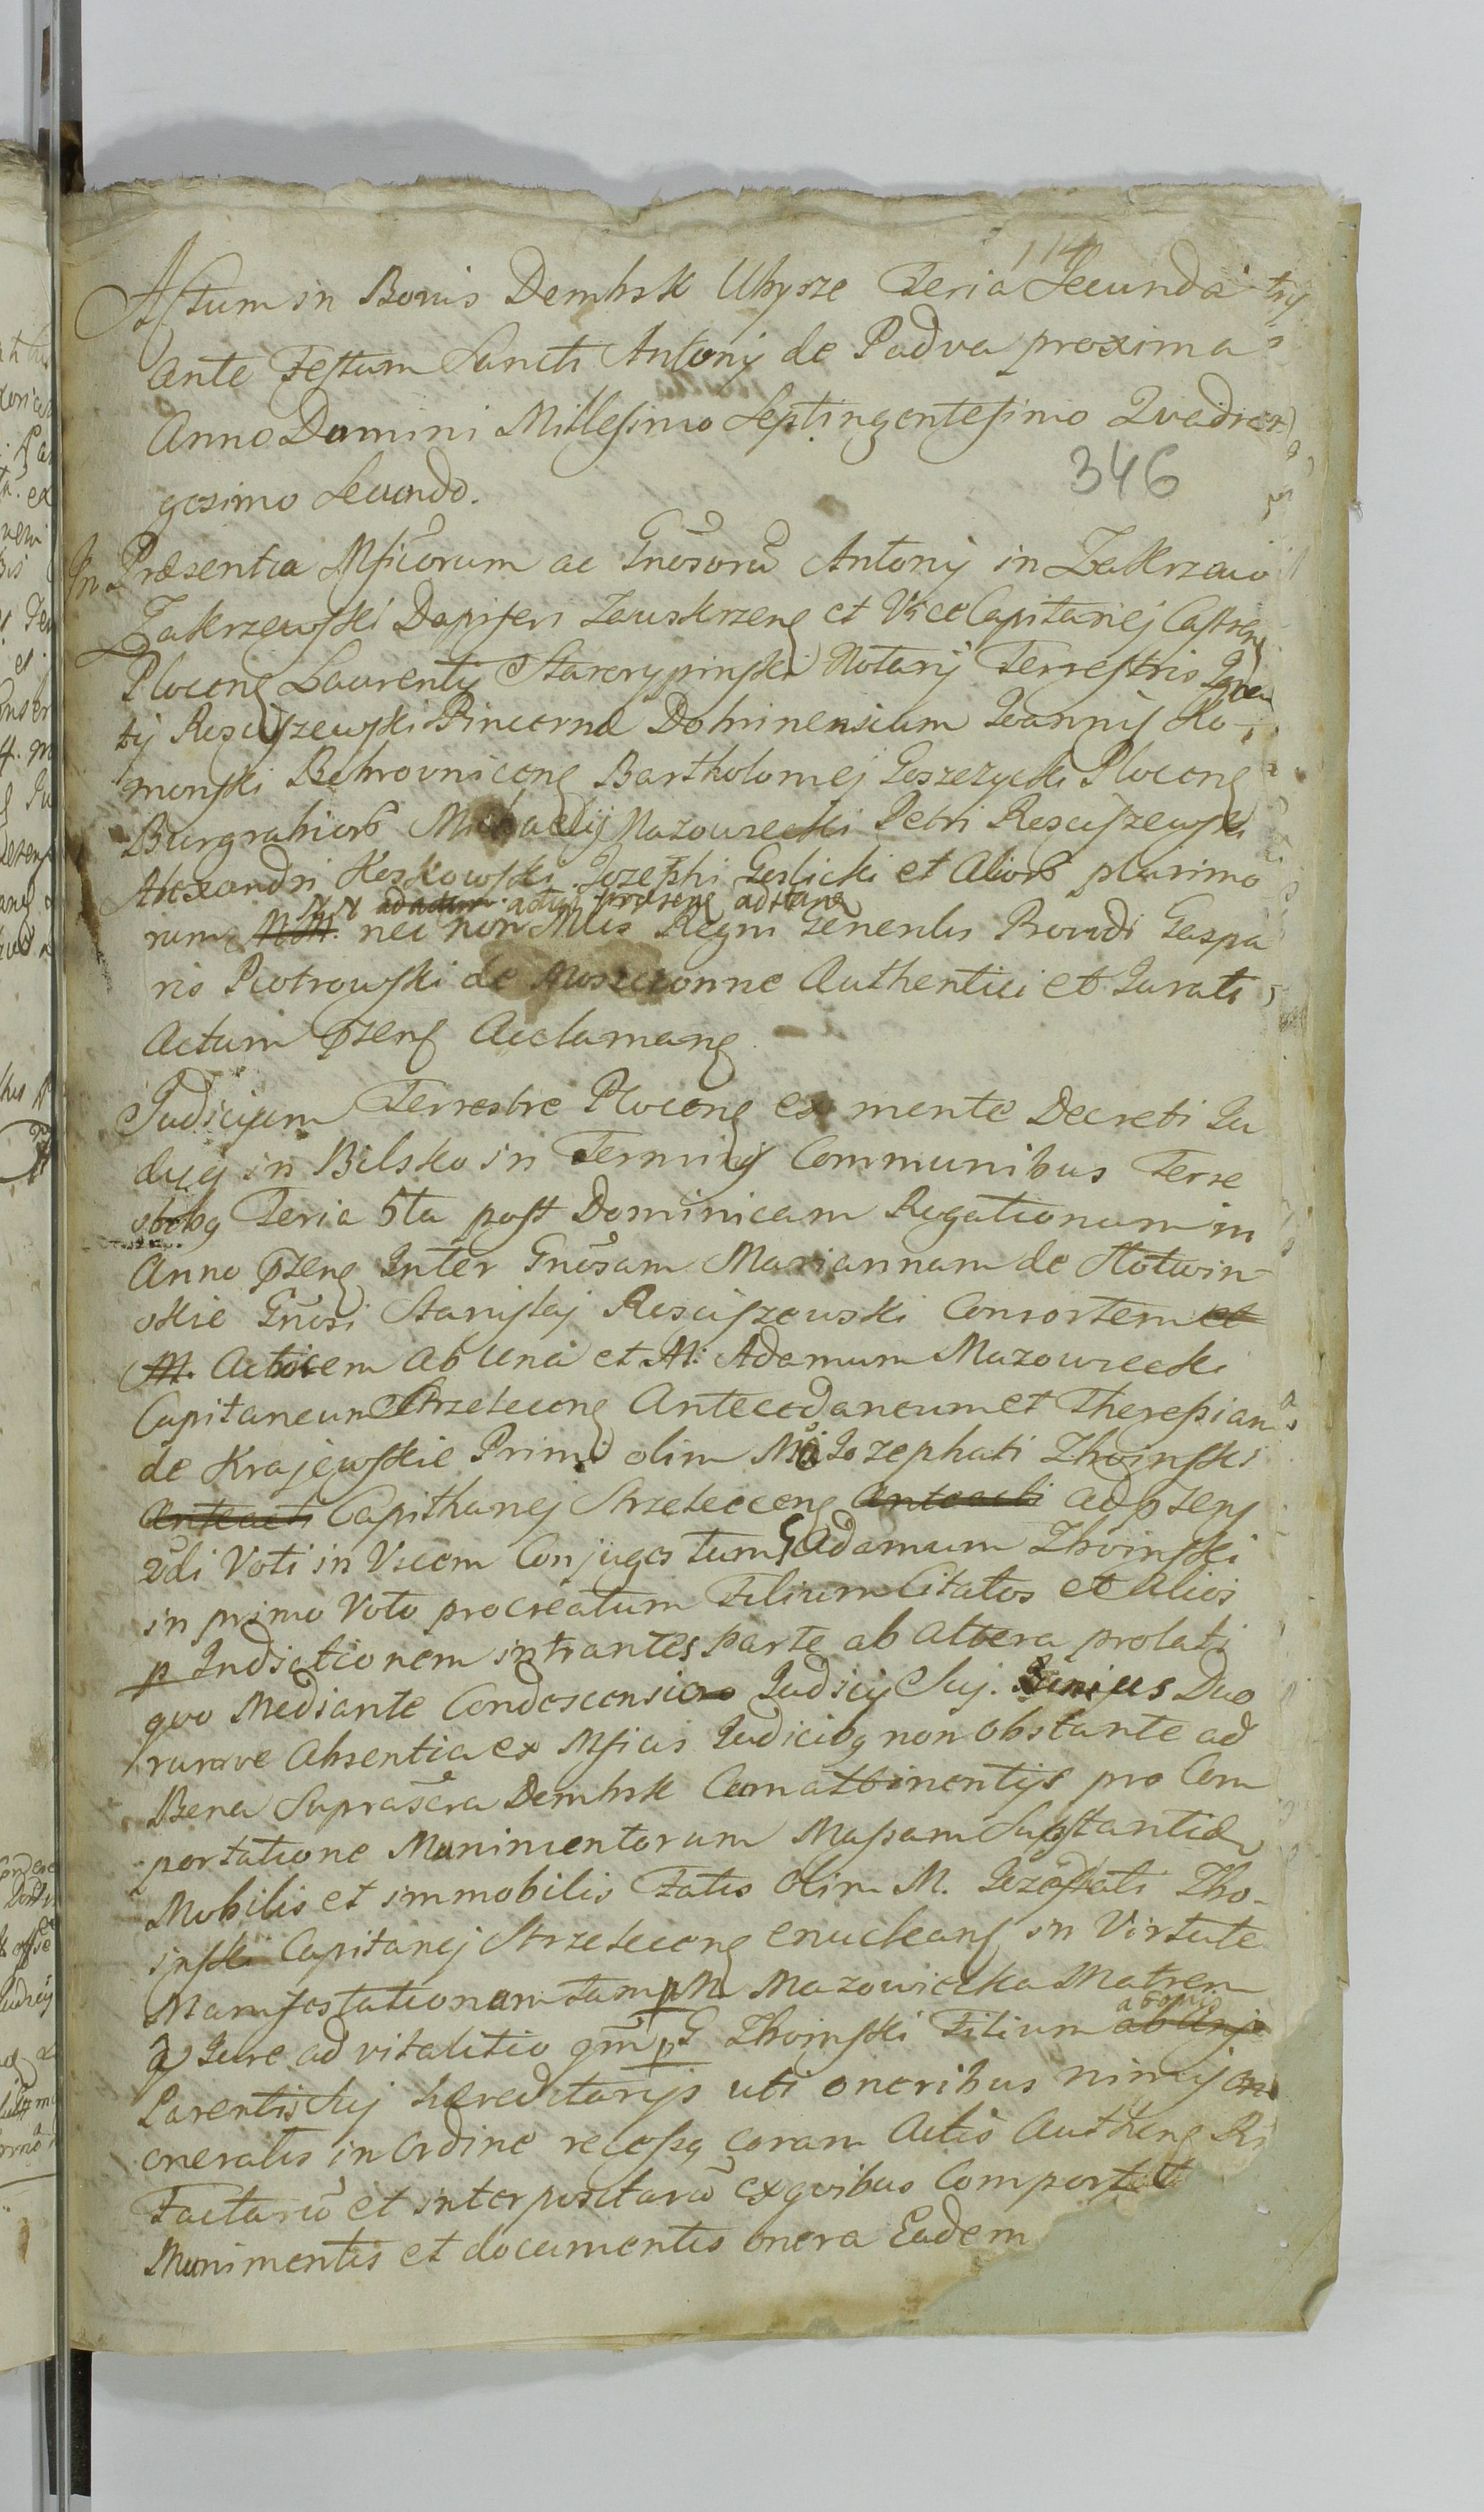 114
Actum in Bonis Dembsk Ubysze Feria Secunda
ante Festum Sancti Antonij de Padva proxima
Anno Domini Millesimo Septingentesimo Qvadra
gesimo Secundo.
346
In Præsentia Mficorum ac Gnosorũ Antonij in Zakrzewo
Zakrzewski Dapiferi Zawskrzenę et Vice Capitanej Castrenę
Plocenę Laurentij Starorypinski Notarij Terrestris Igna
tij Rosciszewski Pincernæ Dobrinensium Joannis Ko-
morski Bohrovnicenę Bartholomej Goszczycki Plocenę
Burgrabiorũ Michaelis Mazowiecki Petri Rosciszewski
Alexandri Koskowski Josephi Geslicki et Aliorũ plurimo
adactum actui præsenę adstanę
rum nec non Mlis Regni Generlis Providi Gaspa
ris Piotrowski de Authentici et Jurati
Actum pzenę Acclamanę
Judicium Terrestre Plocenę ex mente Decreti Ju
dicij in Bilsko in Terminis Communibus Terre
stribg Feria 5ta post Dominicam Rogationum in
Anno pzenę Inter Gnosam Mariannam de Kotwin-
skie Gnosi Stanislaj Rosciszewski Consortem et
M. Actorem ab una et M. Adamum Mazowiecki
Capitaneum Strzelecenę Antecedaneum et Theressiam
de Krajewskie Primi olim Mi Jozephati Zboinski
Anteacti Capithanej Strzelecenę Anteacti ad pzens
2di Voti in Vicem Conjuges tum G Adamum Zboinski
in primo Voto procreatum Filium Citatos et Alios
p Indictionem intrantes parte ab altera prolati
qvo Mediante Condescensio Judicij Sui. Unius Duo
rumve Absentia ex Mficis Judicibg non obstante ad
Bona Suprascra Dembsk Cum attinentijs pro Com
portatione Munimentorum Massam Substantiæ
Mobilis et immobilis Fatis olim M. Jozephati Zbo-
inski Capitanej Strzelecenę enucleanę in Virtute
Manifestationum tam p M. Mazowiecka Matrem
Jure ad vitalitio qm p G Zboinski Filium a bonis
Parentis Sui hæreditarijs uti oneribus nimijs
oneratis in Ordine recessg coram Actis Authenę
Factarũ et interpositarũ exqvibus Comportatis
Munimentis et documentis onera Eadem